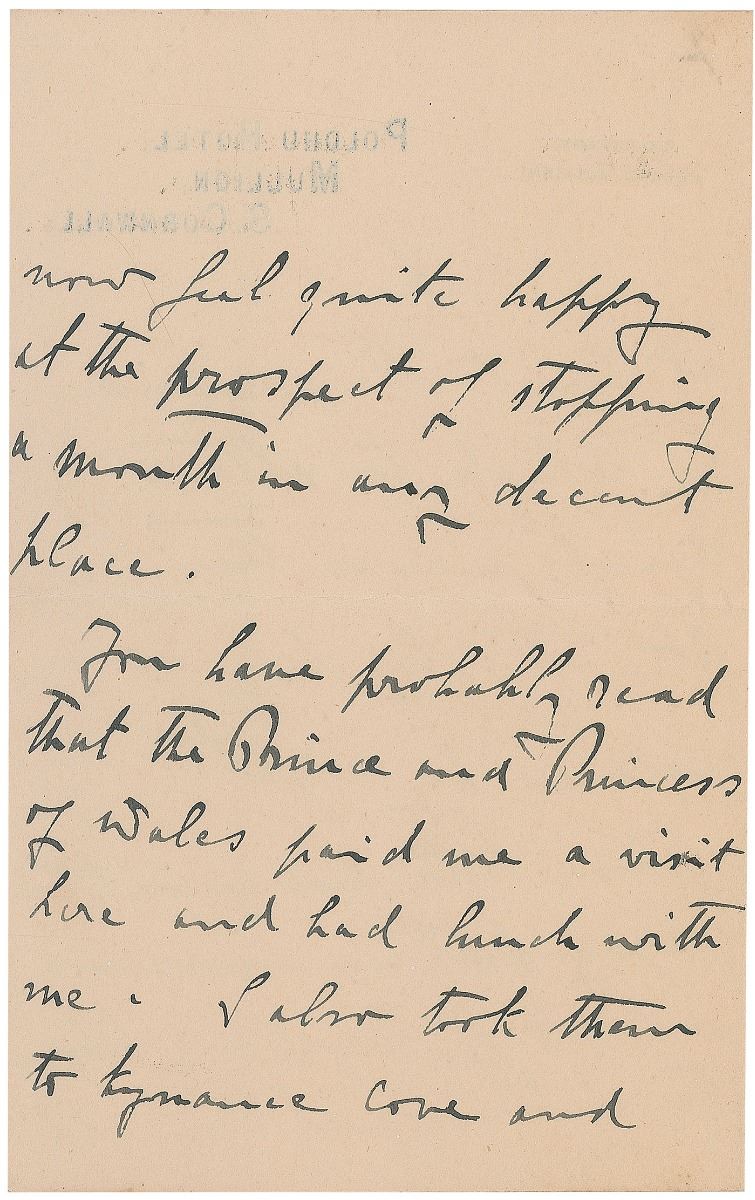 POLDHU HOTEL
MULLION
S. CORNWALL
now feel quite happy
at the prospect of stopping
a month in any decent
place.
You have probably read
that the Prince and Princess
of Wales paid me a visit
here and had lunch with
me. I also took them
to Kynance Cove and